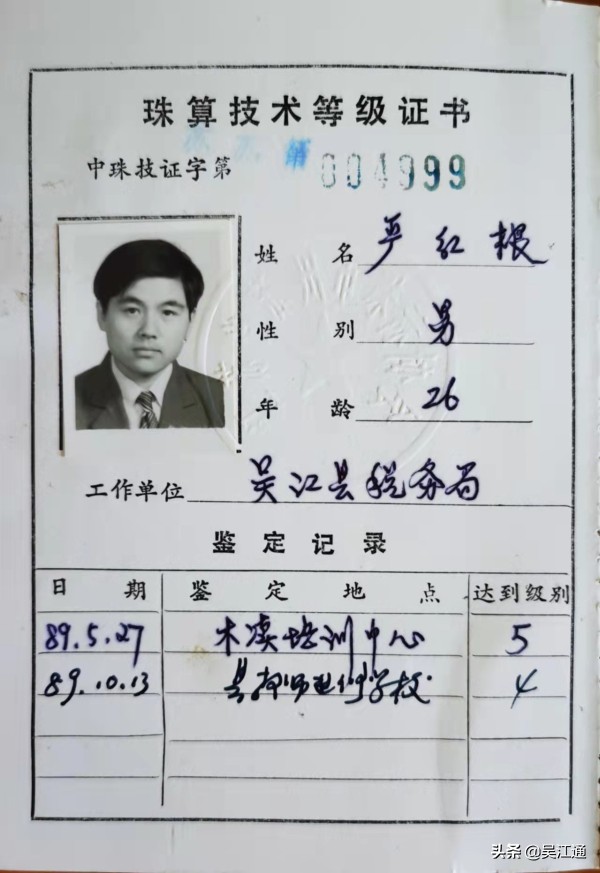 珠算技术等级证书
中珠技证字第 004999
姓名 严红根
性别 男
年龄 26
工作单位 吴江县税务局
鉴定记录
日期 鉴定地点 达到级别
89.5.27 木渎培训中心 5
89.10.13 县教师进修学校 4
头条@吴江通